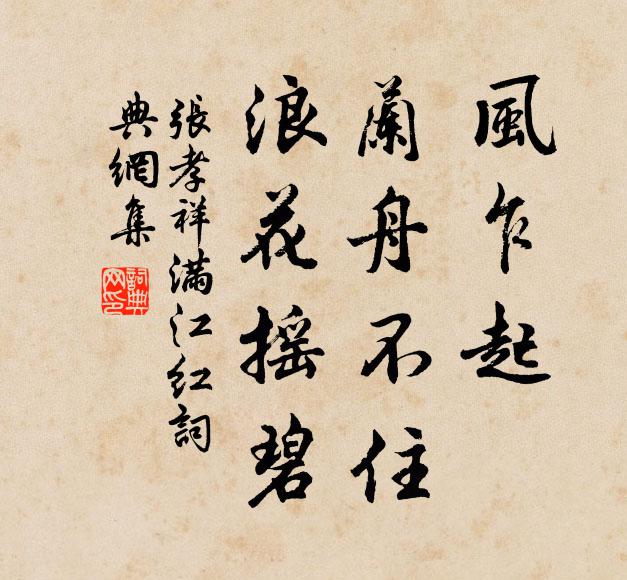 風乍起
蘭舟不住
浪花搖碧
張孝祥滿江紅詞
典網集
詞典網印